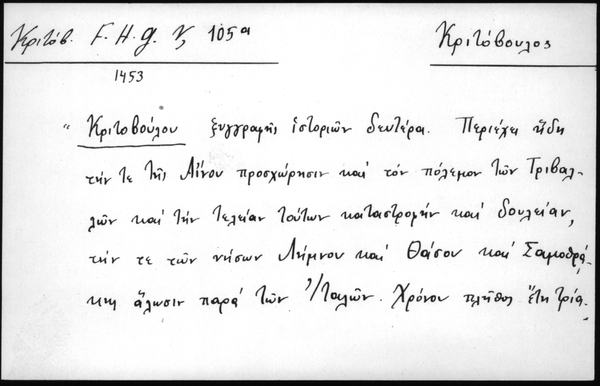 Κριτόβ. F. H. G. V, 105a
Κριτόβουλος
1453
" Κριτοβούλου ξυγγραφῆς ἱστοριῶν δευτέρα. Περιέχει ἤδη
τήν τε τῆς Αἴνου προσχώρησιν καί τόν πόλεμον τῶν Τριβαλ-
λῶν καί τήν τελείαν τούτων καταστροφήν καί δουλείαν,
τήν τε τῶν νήσων Λήμνου καί Θάσου καί Σαμοθρά-
κης ἅλωσιν παρά τῶν Ἰταλῶν. Χρόνου πλῆθος ἔτη τρία.